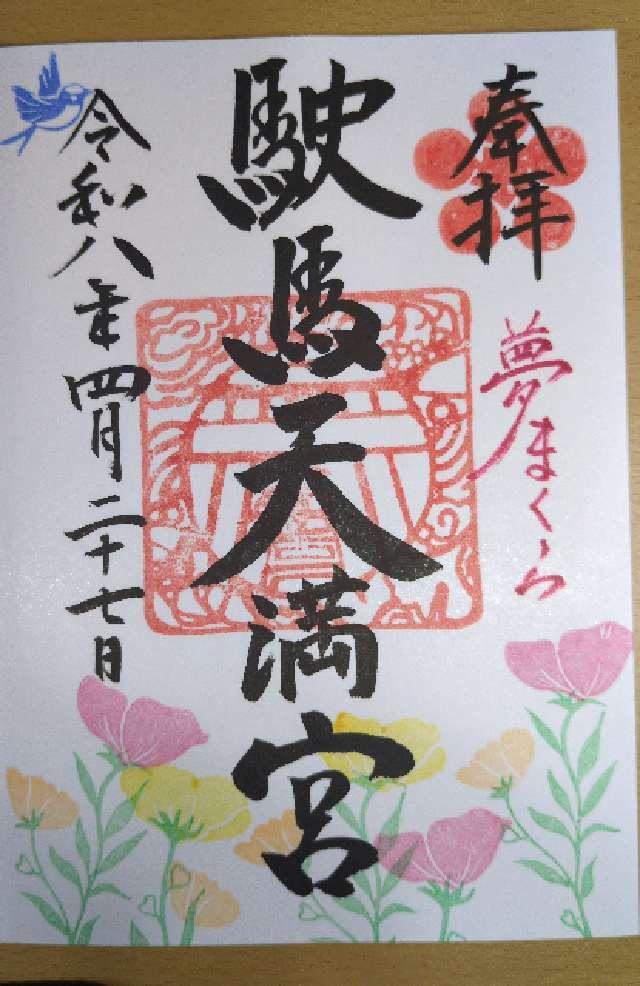 奉拝
夢まくら
駛馬天満宮
令和八年四月二十七日